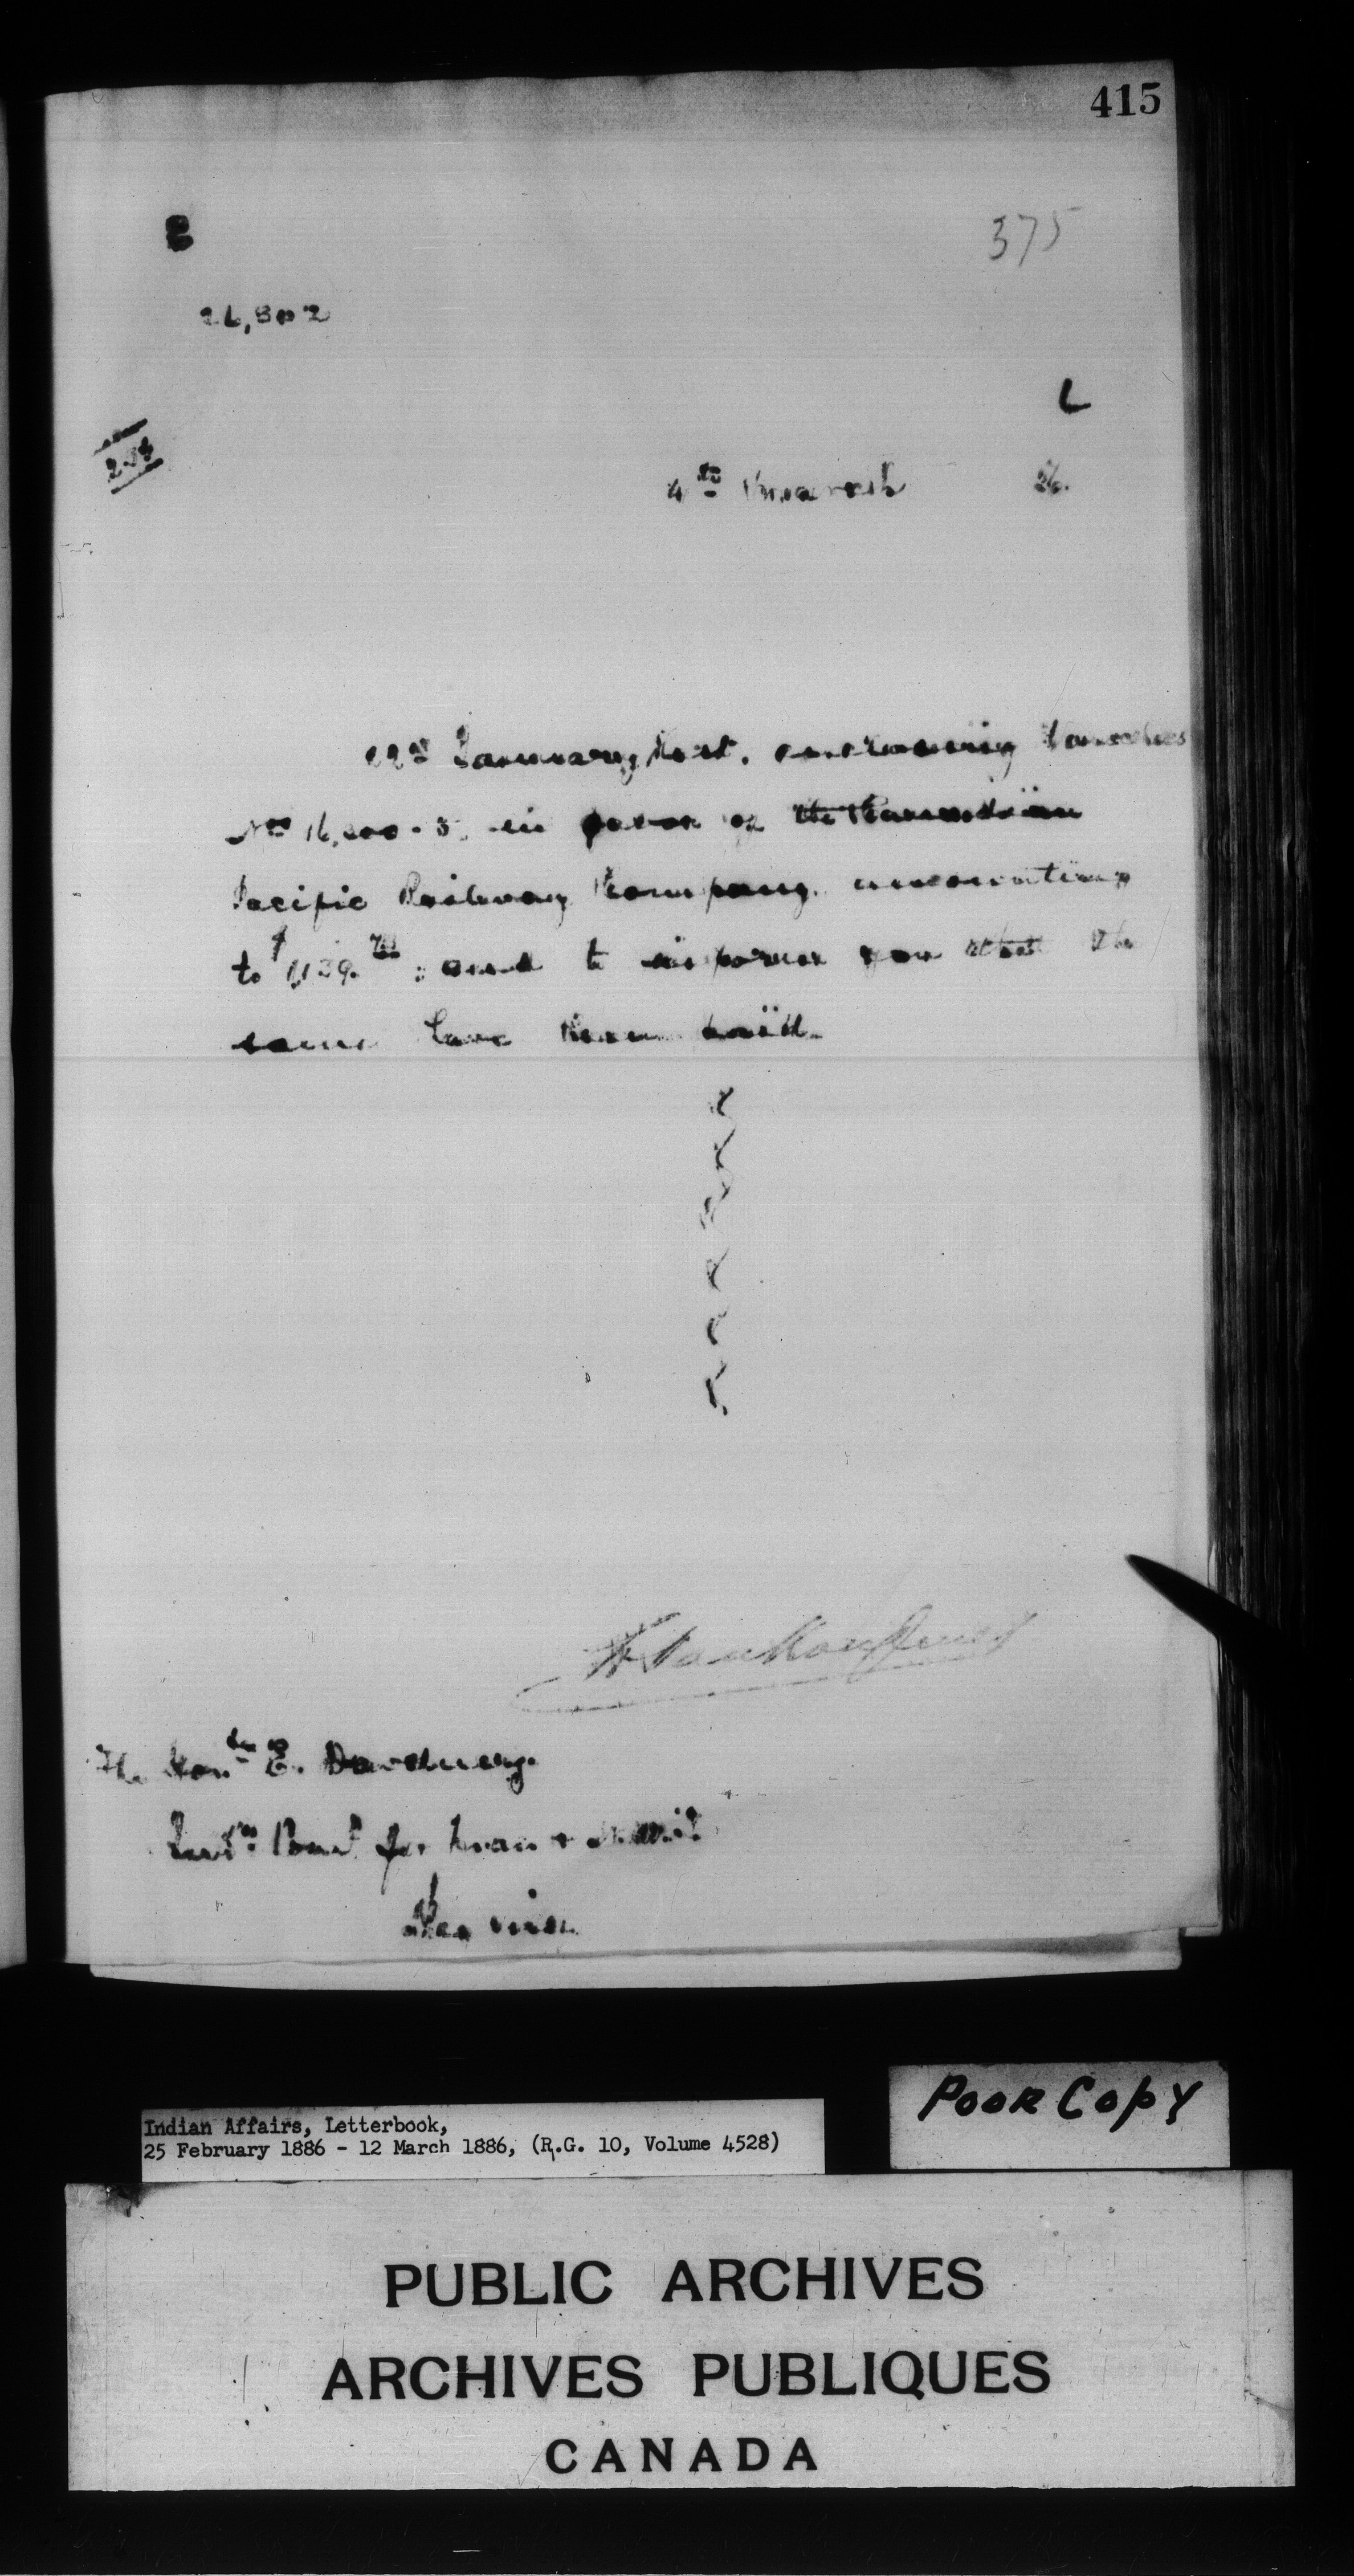 415
375
26,802
L
4th March 86.
22d January last, enclosing vouchers
Nos 16,200-5, in favor of the Canadian
Pacific Railway Company, amounting
to $1,139. and to inform you that the
same have been paid.
L. VanKoughnet
The Honble E. Dewdney.
Indn Comr for Man & N.W.T.
Regina
Indian Affairs, Letterbook,
25 February 1886 - 12 March 1886, (R.G. 10, Volume 4528)
POOR COPY
PUBLIC ARCHIVES
ARCHIVES PUBLIQUES
CANADA